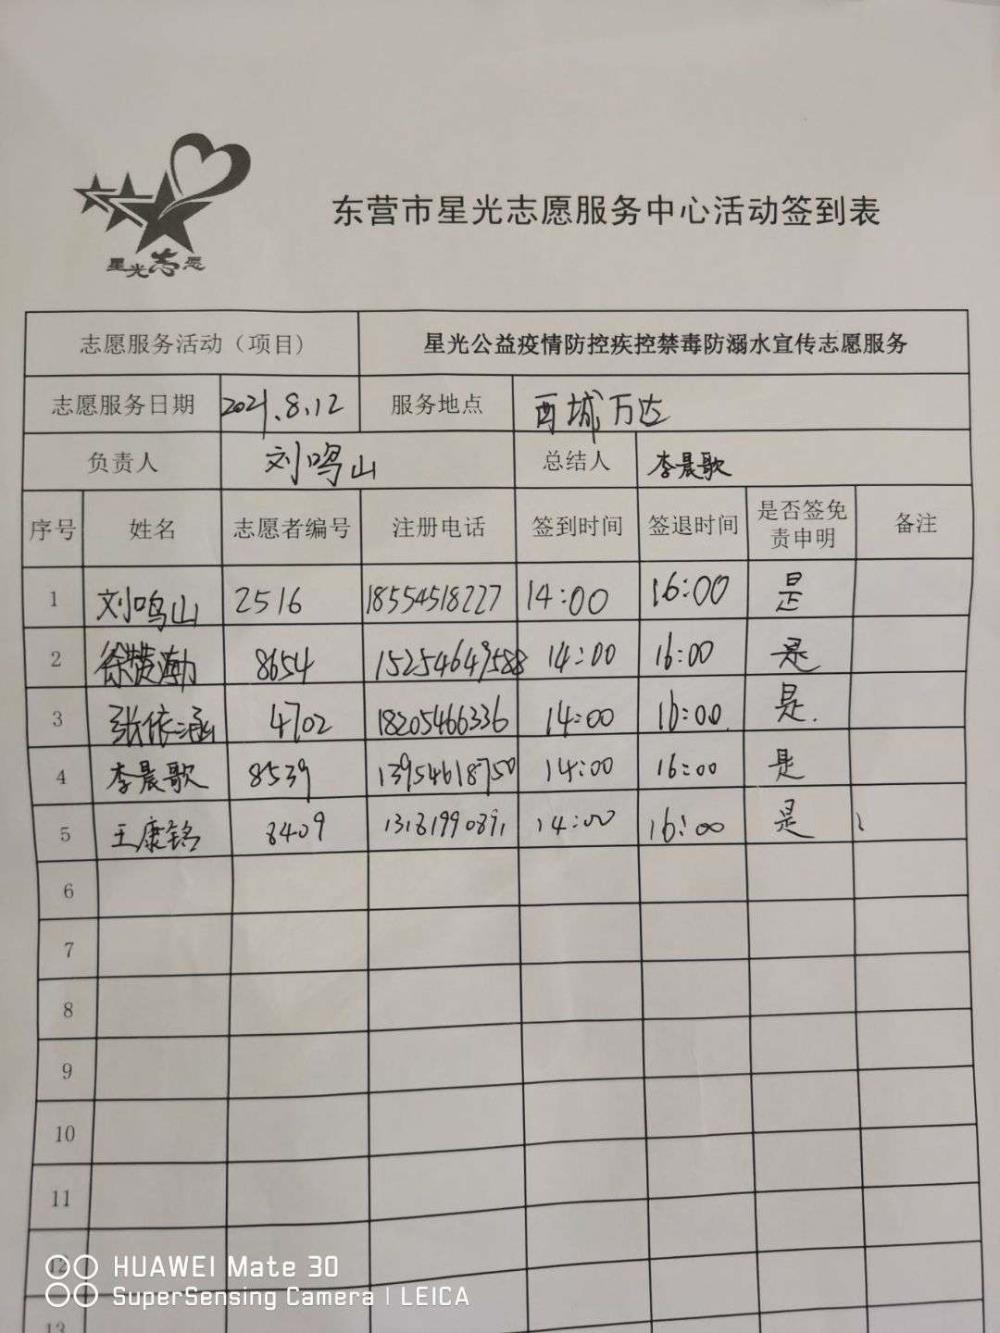 星光志愿
东营市星光志愿服务中心活动签到表
志愿服务活动（项目） 星光公益疫情防控疾控禁毒防溺水宣传志愿服务
志愿服务日期 2021.8.12 服务地点 西城万达
负责人 刘鸣山 总结人 李晨歌
序号 姓名 志愿者编号 注册电话 签到时间 签退时间 是否签免责申明 备注
1 刘鸣山 2516 18554518227 14:00 16:00 是
2 徐赞瀚 8654 15254649588 14:00 16:00 是
3 张依涵 4702 18205466336 14:00 16:00 是.
4 李晨歌 8539 13954618750 14:00 16:00 是
5 王康铭 8409 13181990891 14:00 16:00 是
6
7
8
9
10
11
12
13
HUAWEI Mate 30
SuperSensing Camera | LEICA